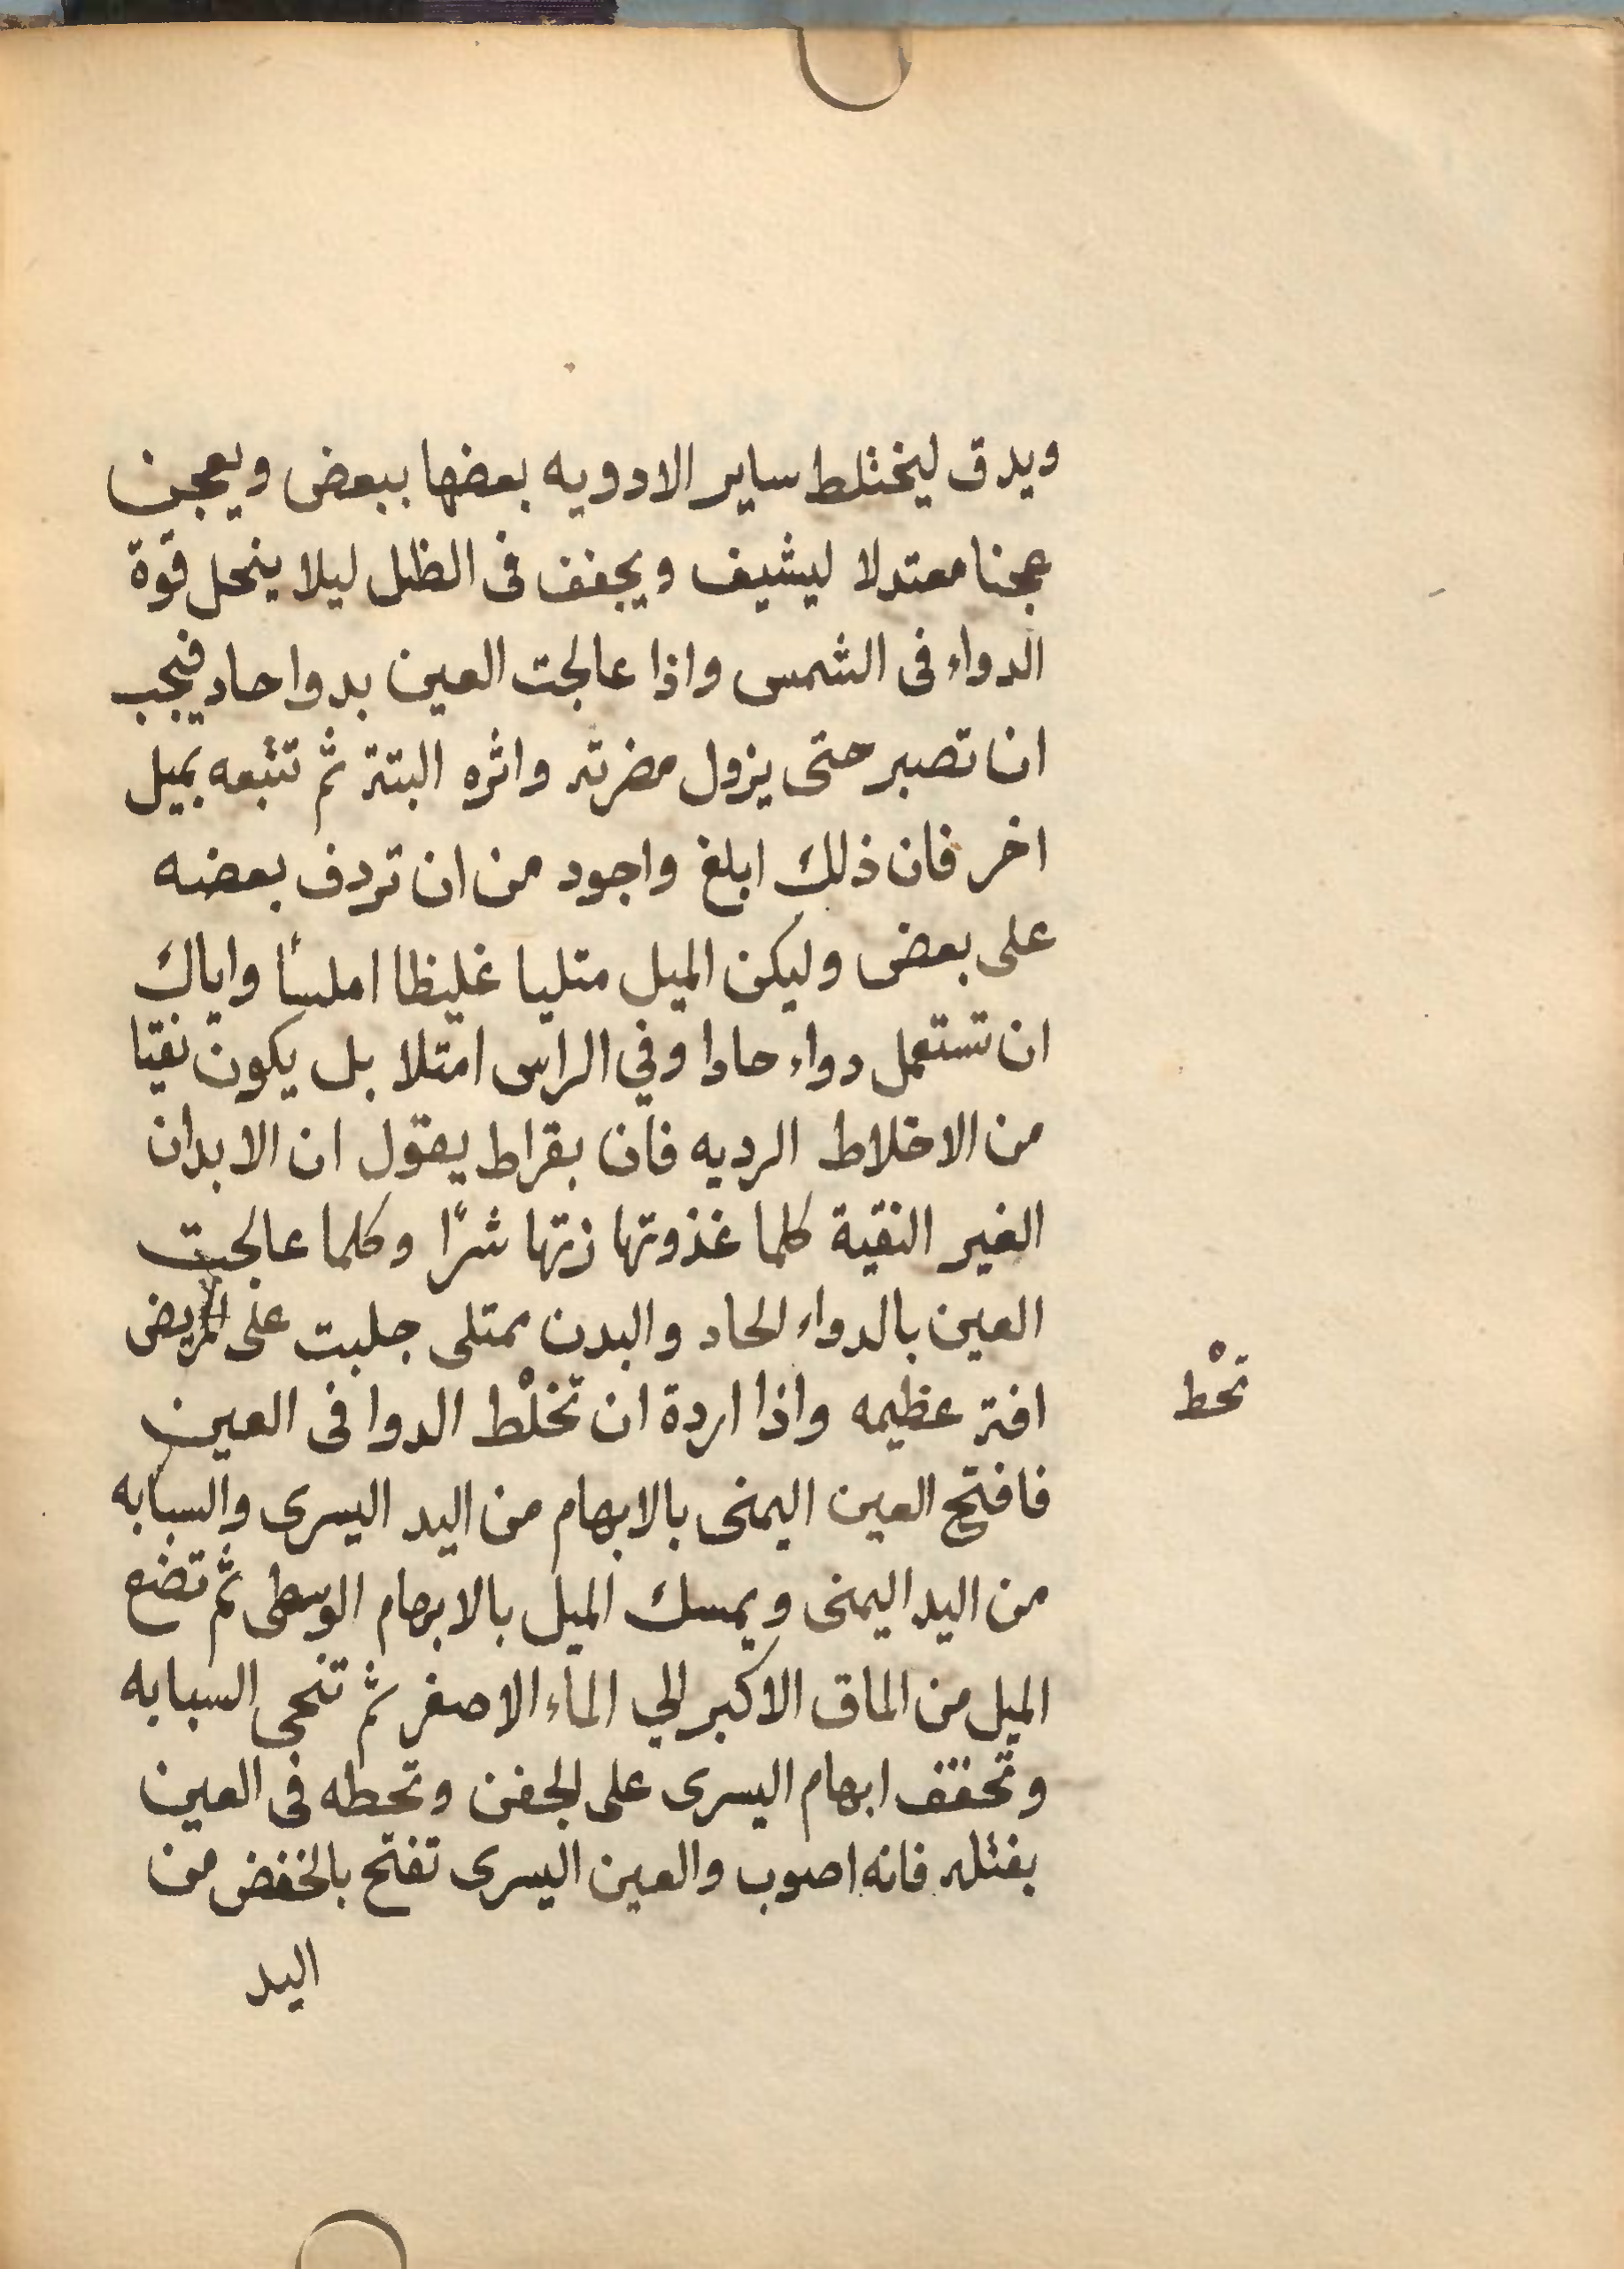 ويدق ليختلط ساير الادويه بعضها ببعض ويعجن
عجنا معتدلا ليشيف ويجفف فى الظل ليلا ينحل قوة
الدواء فى الشمس واذا عالجت العين بدوا حاد فيجب
ان تصبر حتى يزول مضرته واثره البتة ثم تتبعه بميل
اخر فان ذلك ابلغ واجود من ان تردف بعضه
على بعض وليكن الميل متليا غليظا املسًا واياك
ان تستعمل دواء حادا وفي الراس امتلا بل يكون نقيّا
من الاخلاط الرديه فان بقراط يقول ان الابدان
الغير النقية كلما غذوتها زتها شرًا وكلما عالجت
العين بالدواء الحاد والبدن ممتلى جلبت على المريض
افة عظيمه واذا اردة ان تخلْط الدوا فى العين
تحْط
فافتح العين اليمنى بالابهام من اليد اليسرى والسبابه
من اليد اليمنى ويمسك الميل بالابهام الوسطى ثم تضع
الميل من الماق الاكبر الي الماء الاصغر ثم تنحى السبابه
وتخفف ابهام اليسرى على الجفن وتحطه فى العين
بفتله فانه اصوب والعين اليسرى تفتح بالخفض من
اليد